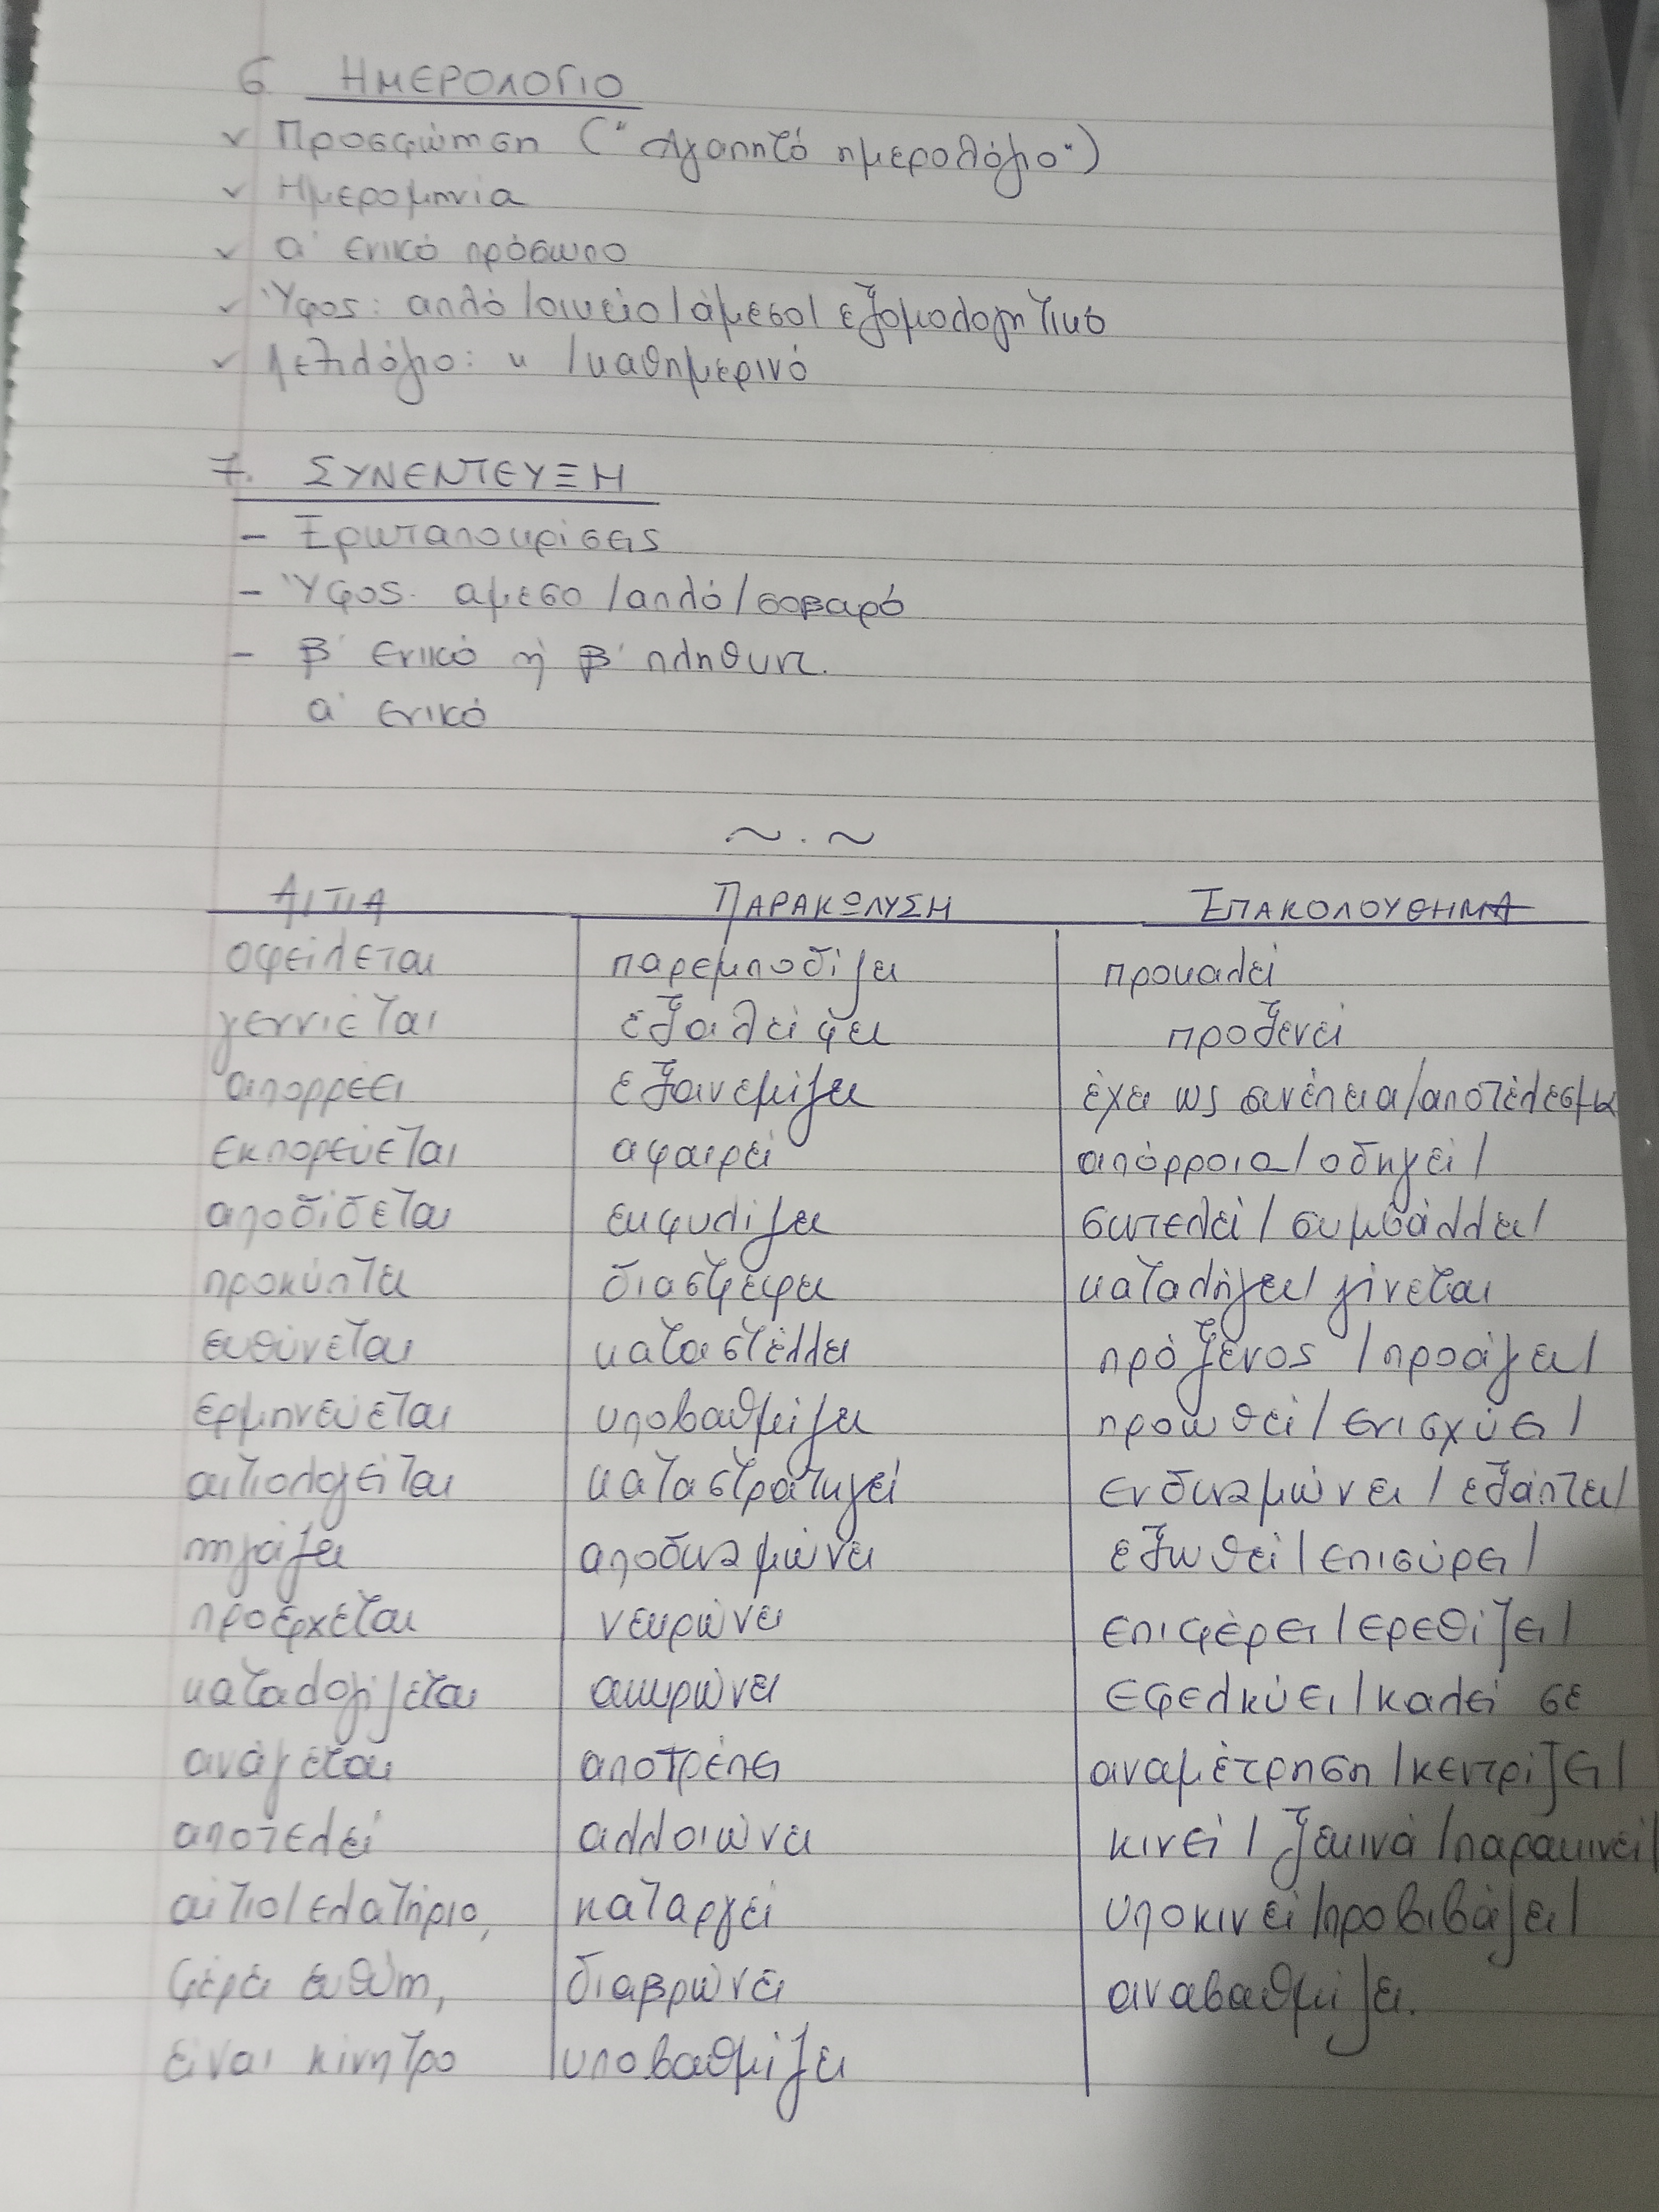 6. ΗΜΕΡΟΛΟΓΙΟ
✓ Προσφώνηση ("Αγαπητό ημερολόγιο")
✓ Ημερομηνία
✓ α' ενικό πρόσωπο
✓ Ύφος: απλό/οικείο/άμεσο/εξομολογητικό
✓ Λεξιλόγιο: κ /καθημερινό
7. ΣΥΝΕΝΤΕΥΞΗ
- Ερωταποκρίσεις
- Ύφος: αμεσο/απλό/σοβαρό
- β' ενικό ή β' πληθυντ.
α' ενικό
~.~
ΑΙΤΙΑ ΠΑΡΑΚΩΛΥΣΗ ΕΠΑΚΟΛΟΥΘΗΜΑ
οφείλεται παρεμποδίζει προκαλεί
γεννιέται εξαλείφει προξενεί
απορρέει εξανεμίζει έχει ως συνέπεια/αποτέλεσμα
εκπορεύεται αφαιρεί απόρροια/οδηγεί/
αποδίδεται εκφυλίζει συντελεί/συμβάλλει/
προκύπτει διαστρέφει καταλήγει/γίνεται
ευθύνεται καταστέλλει πρόξενος/προάγει/
ερμηνεύεται υποβαθμίζει προωθεί/ενισχύει/
αιτιολογείται καταστρατηγεί ενδυναμώνει/εξάπτει/
πηγάζει αποδυναμώνει εξωθεί/επισύρει/
προέρχεται νεκρώνει επιφέρει/ερεθίζει/
καταλογίζεται ακυρώνει εφελκύει/καλεί σε
ανάγεται αποτρέπει αναμέτρηση/κεντρίζει/
αποτελεί αλλοιώνει κινεί/ξεκινά/παρακινεί/
αίτιο/ελατήριο, καταργεί υποκινεί/προβιβάζει/
φέρει ευθύνη, διαβρώνει αναβαθμίζει.
είναι κίνητρο υποβαθμίζει